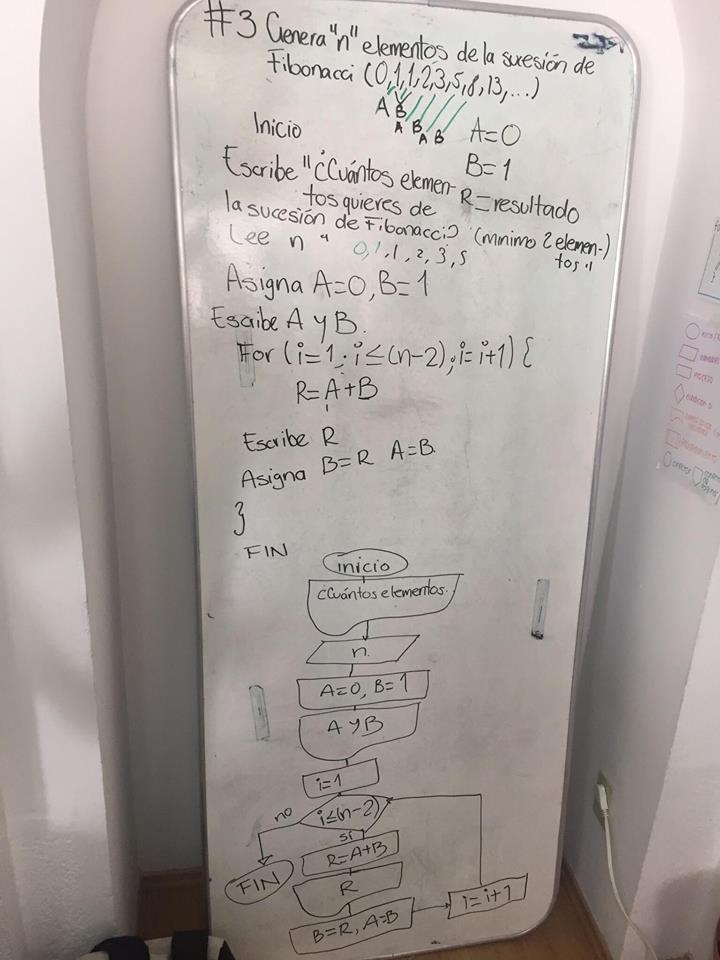 #3 Genera "n" elementos de la sucesión de
Fibonacci (0,1,1,2,3,5,8,13,...)
A B
A B
A B
A=0
B=1
R=resultado
Inicio
Escribe "¿Cuántos elemen-
tos quieres de
la sucesión de Fibonacci? (mínimo 2 elemen-)
tos"
Lee n
0,1,1,2,3,5
Asigna A=0, B=1
Escribe A y B.
For (i=1; i≤(n-2); i=i+1) {
R=A+B
Escribe R
Asigna B=R A=B.
}
FIN
inicio
¿Cuántos elementos..
n.
A=0, B=1
A y B
i=1
no
i≤(n-2)
si
R=A+B
FIN
R
B=R, A=B
i=i+1